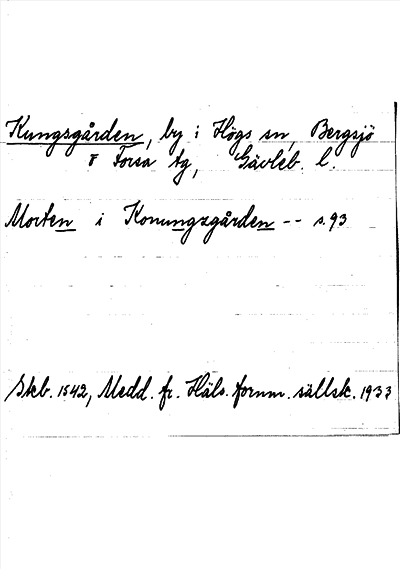 Kungsgården, by i Högs sn, Bergsjö
o Forsa tg, Gävleb. l.
Morten i Konungzgården -- s. 93
Skb. 1542, Medd. fr. Häls. fornm. sällsk. 1933